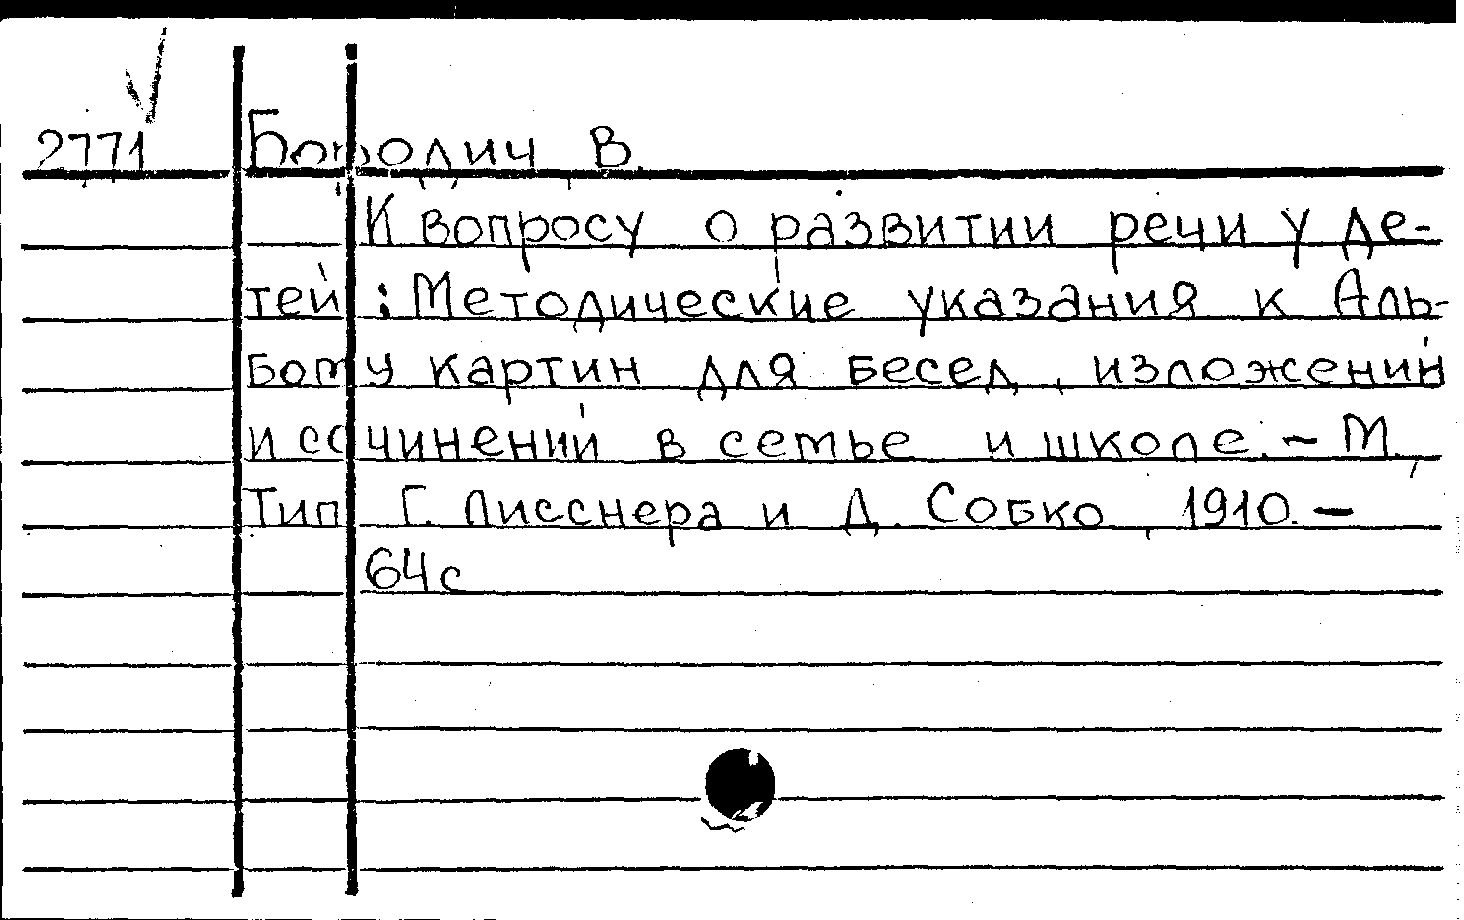 2771 Бородич В.
К вопросу о развитии речи у де-
тей : Методические указания к Аль-
бому картин для бесед, изложений
и сочинений в семье и школе. - М.,
Тип. Г. Лисснера и Д. Собко, 1910. -
64с